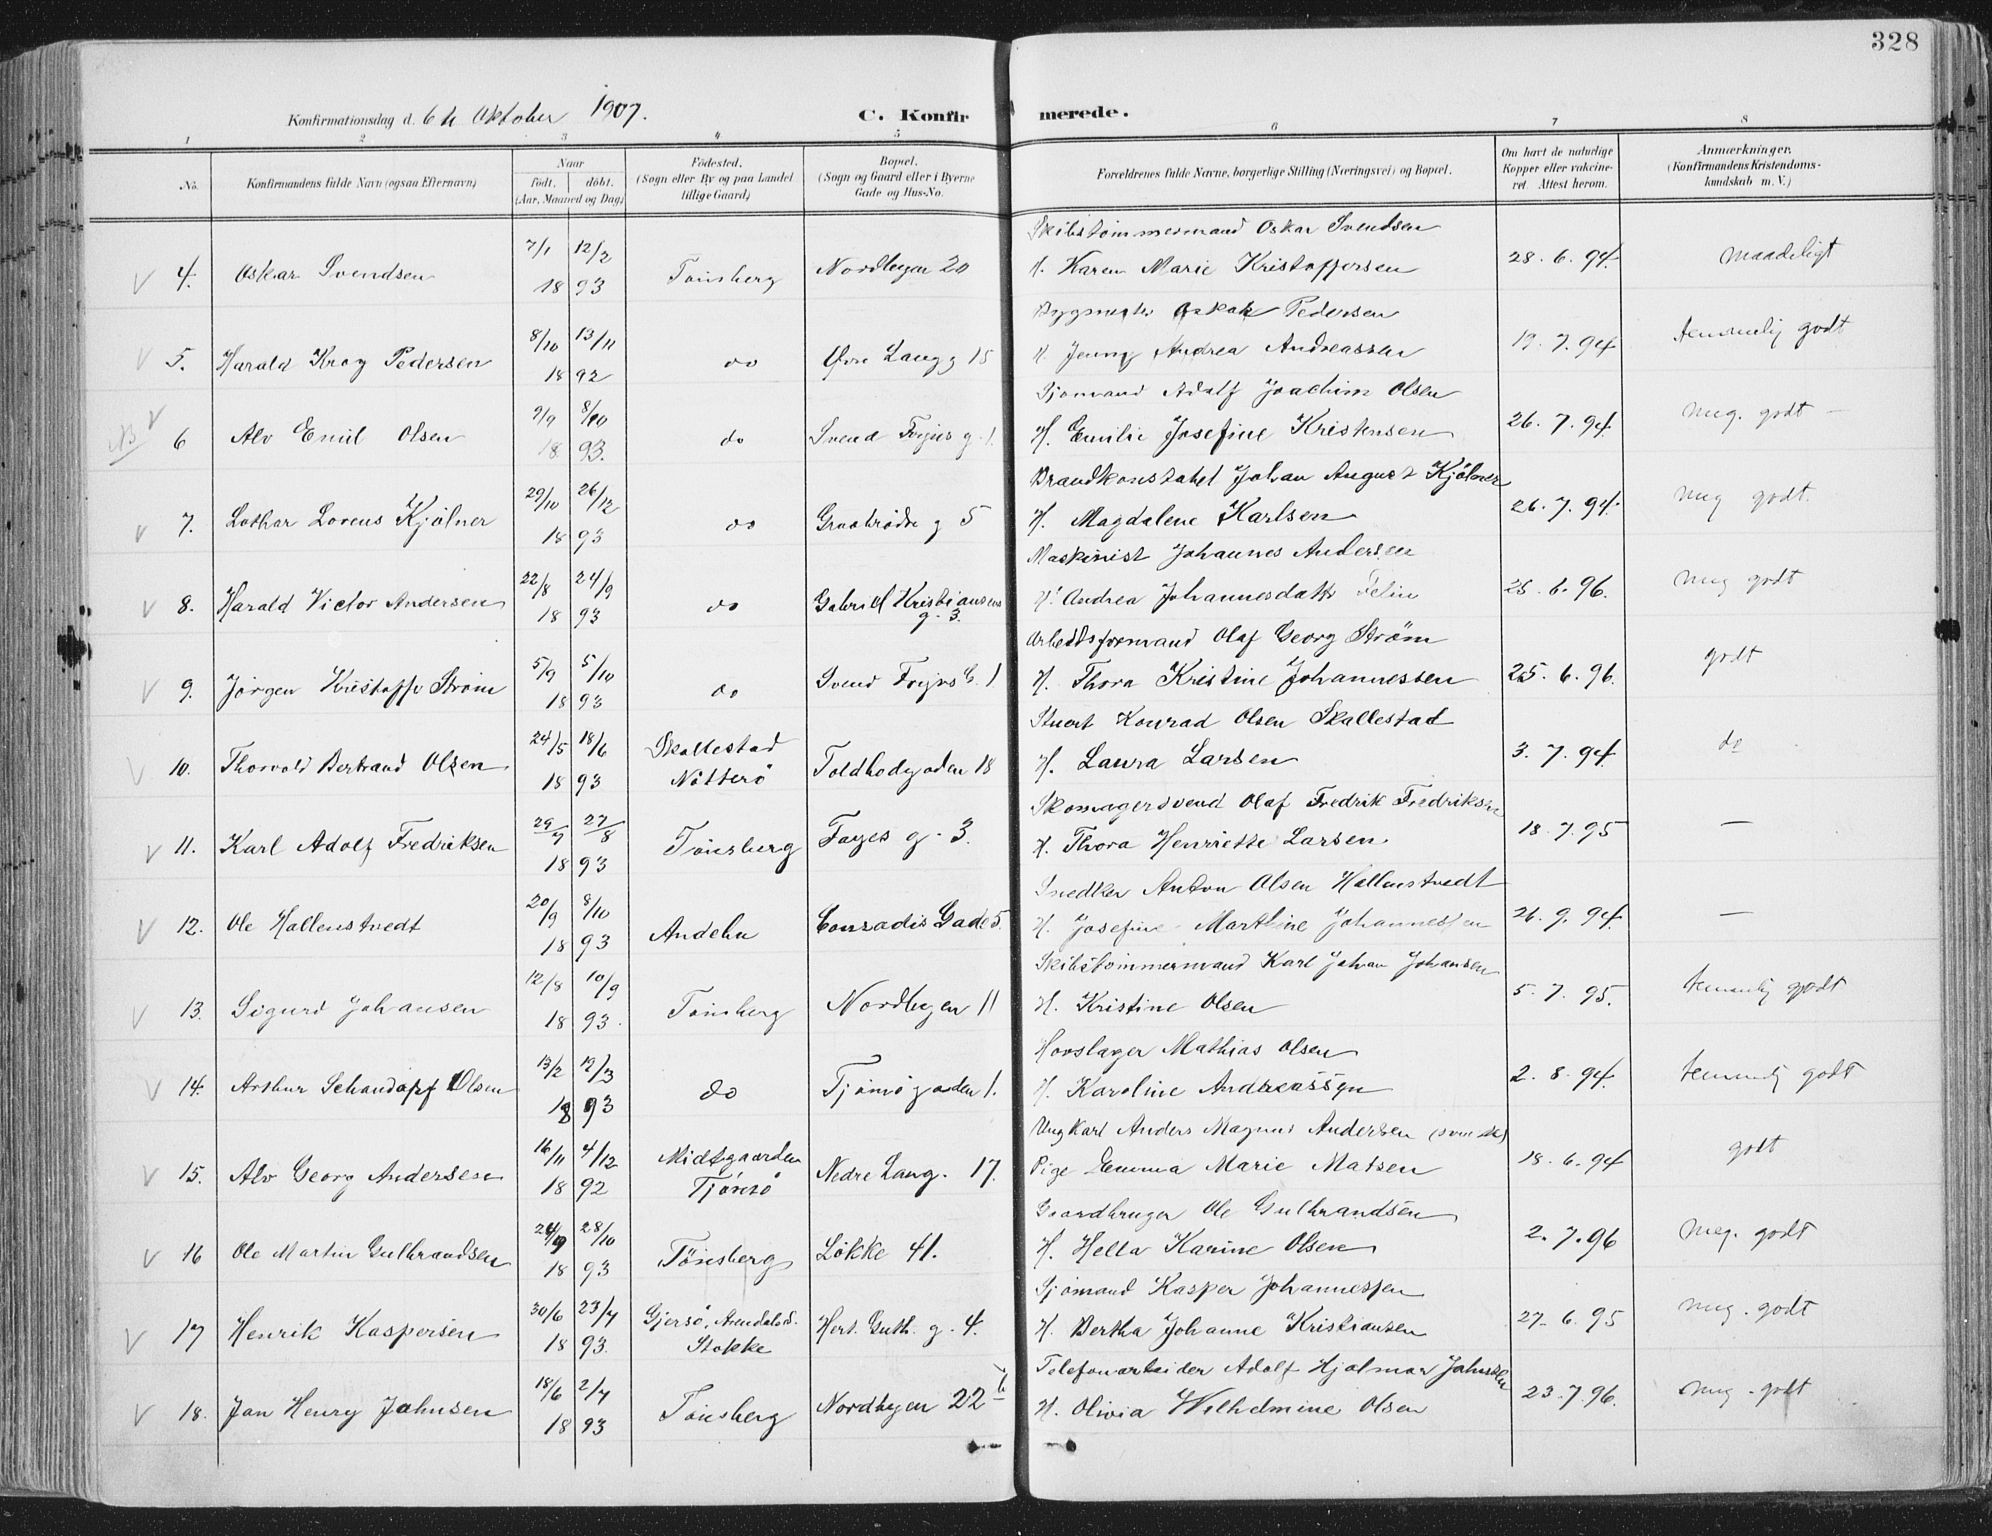 328
Konfirmationsdag d. 6te Oktober 1907.
C. Konfirmerede.
1 2 3 4 5 6 7 8
No.
Konfirmandens fulde Navn (ogsaa Efternavn)
Naar
födt. döbt.
(Aar, Maaned og Dag)
Födested.
(Sogn eller By og paa Landet
tillige Gaard)
Bopæl.
(Sogn og Gaard eller i Byerne
Gade og Hus-No.
Forældrenes fulde Navne, borgerlige Stilling (Næringsvei) og Bopæl.
Om havt de naturlige
Kopper eller vakcine-
ret Attest herom.
Anmærkninger.
(Konfirmandens Kristendoms-
kundskab m. V.)
Skibstømmermand Oskar Svendsen
V 4. Oskar Svendsen 7/1 12/2 18 93 Tönsberg Nordbyen 20 H. Karen Marie Kristoffersen 28. 6. 94. maadeligt
Bygmester Oskar Pedersen
V 5. Harald Krog Pedersen 8/10 13/11 18 92 do Øvre Langg 15 H. Jenny Andrea Andreassen 19. 7. 94 temmelig godt
Sjömand Adolf Joachim Olsen
NB V 6 Alv Emil Olsen 9/9 8/10 18 93. do Svend Foyns g. 1. H. Emilie Josefine Kristensen 26. 7. 94. meg. godt —
Brandkonstabel Johan August Kjölner
V 7. Lothar Lorens Kjölner 29/10 26/12 18 93 do Graabrödre g 5 H. Magdalene Karlsen 26. 7. 94. meg godt.
Maskinist Johannes Andersen
V 8. Harald Victor Andersen 22/8 24/9 18 93 do Gabriel Kristiansens g. 3. H. Andrea Johannesdatter 25. 6. 96. meg godt
Arbeidsformand Olaf Georg Strøm
V 9. Jörgen Kristoffer Strøm 5/9 5/10 18 93 do Svend Foyns G. 1 H. Thora Kristine Johannessen 25. 6. 96. godt
Stuert Konrad Olsen Skallestad
V 10. Thorvald Bertrand Olsen 24/5 18/6 18 93 Skallestad Nötterö Toldbodgaden 18 H. Laura Larsen 3. 7. 94 do
Skomagersvend Olaf Fredrik Fredriksen
V 11. Karl Adolf Fredriksen 29/7 27/8 18 93 Tönsberg Foyes g. 3. H. Thora Henriette Larsen 18. 7. 95 —
Snedker Anton Olsen Hallenstvedt
V 12. Ole Hallenstvedt 20/9 8/10 18 93 Andebu Conradis Gade 5. H. Josefine Marthine Johannessen 26. 9. 94. —
Skibstömmermand Karl Johan Johansen
V 13. Sigurd Johansen 12/8 10/9 18 93. Tönsberg Nordbyen 11 H. Kristine Olsen 5. 7. 95. temmelig godt
Hovslager Mathias Olsen
V 14. Arthur Schandorf Olsen 13/2 12/3 18 93 do Tjømögaden 1. H. Karoline Andreassen 2. 8. 94. temmelig godt
Ungkarl Anders Magnus Andersen
V 15. Alv Georg Andersen 16/11 4/12 18 92 Midtgaarden Tjömö Nedre Lang. 17. Pige Emma Marie Matsen 18. 6. 94 godt
Gaardbruger Ole Gulbrandsen
V 16 Ole Martin Gulbrandsen 24/9 28/10 18 93 Tönsberg Løkke 41. H. Hella Karine Olsen 2. 7. 96 meg. godt
Sjömand Kasper Johannessen
V 17 Henrik Kaspersen 30/6 23/7 18 93. Gjersö, Arendals s. Stokke Hert. Guth. g. 4. H. Bertha Johanne Kristiansen 27. 6. 95 meg. godt
Telefonarbeider Adolf Hjalmar Jahnsen
V 18. Jan Henry Jahnsen 18/6 2/7 18 93 Tönsberg Nordbyen 22 b H. Olivia Wilhelmine Olsen 23. 7. 96. meg. godt